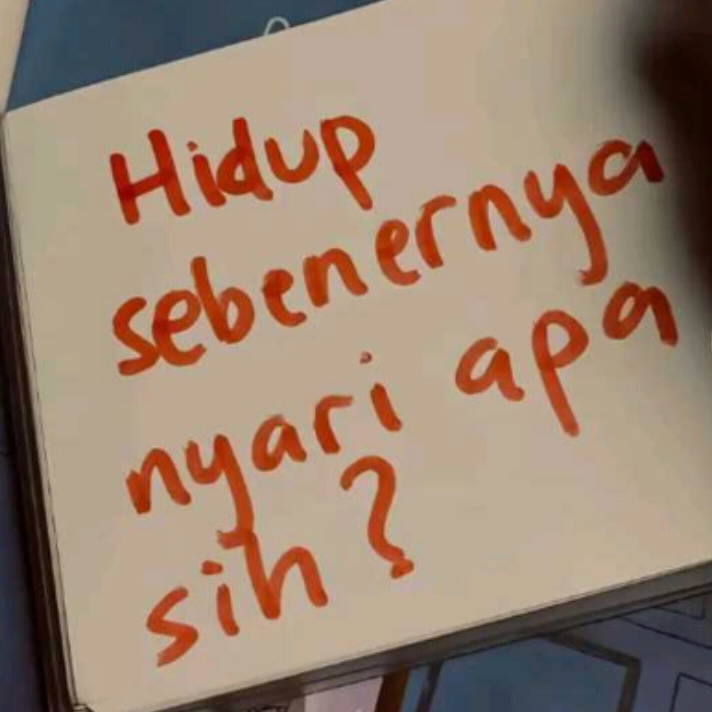 Hidup
sebenernya
nyari apa
sih?